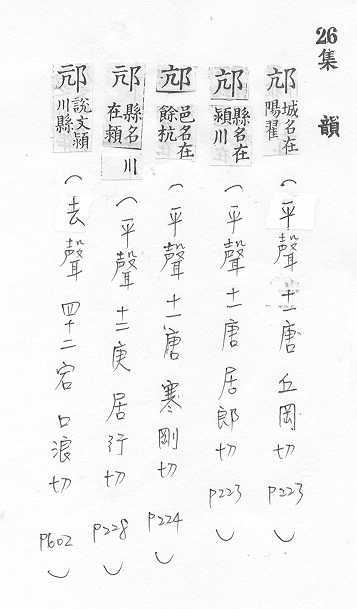 26集韻
邟 城名在陽翟 (平聲 十一唐 丘岡切 P223)
邟 縣名在潁川 (平聲 十一唐 居郎切 P223)
邟 邑名在餘杭 (平聲 十一唐 寒剛切 P224)
邟 縣名在潁川 (平聲 十二庚 居行切 P228)
邟 說文潁川縣 (去聲 四十二宕 口浪切 P602)